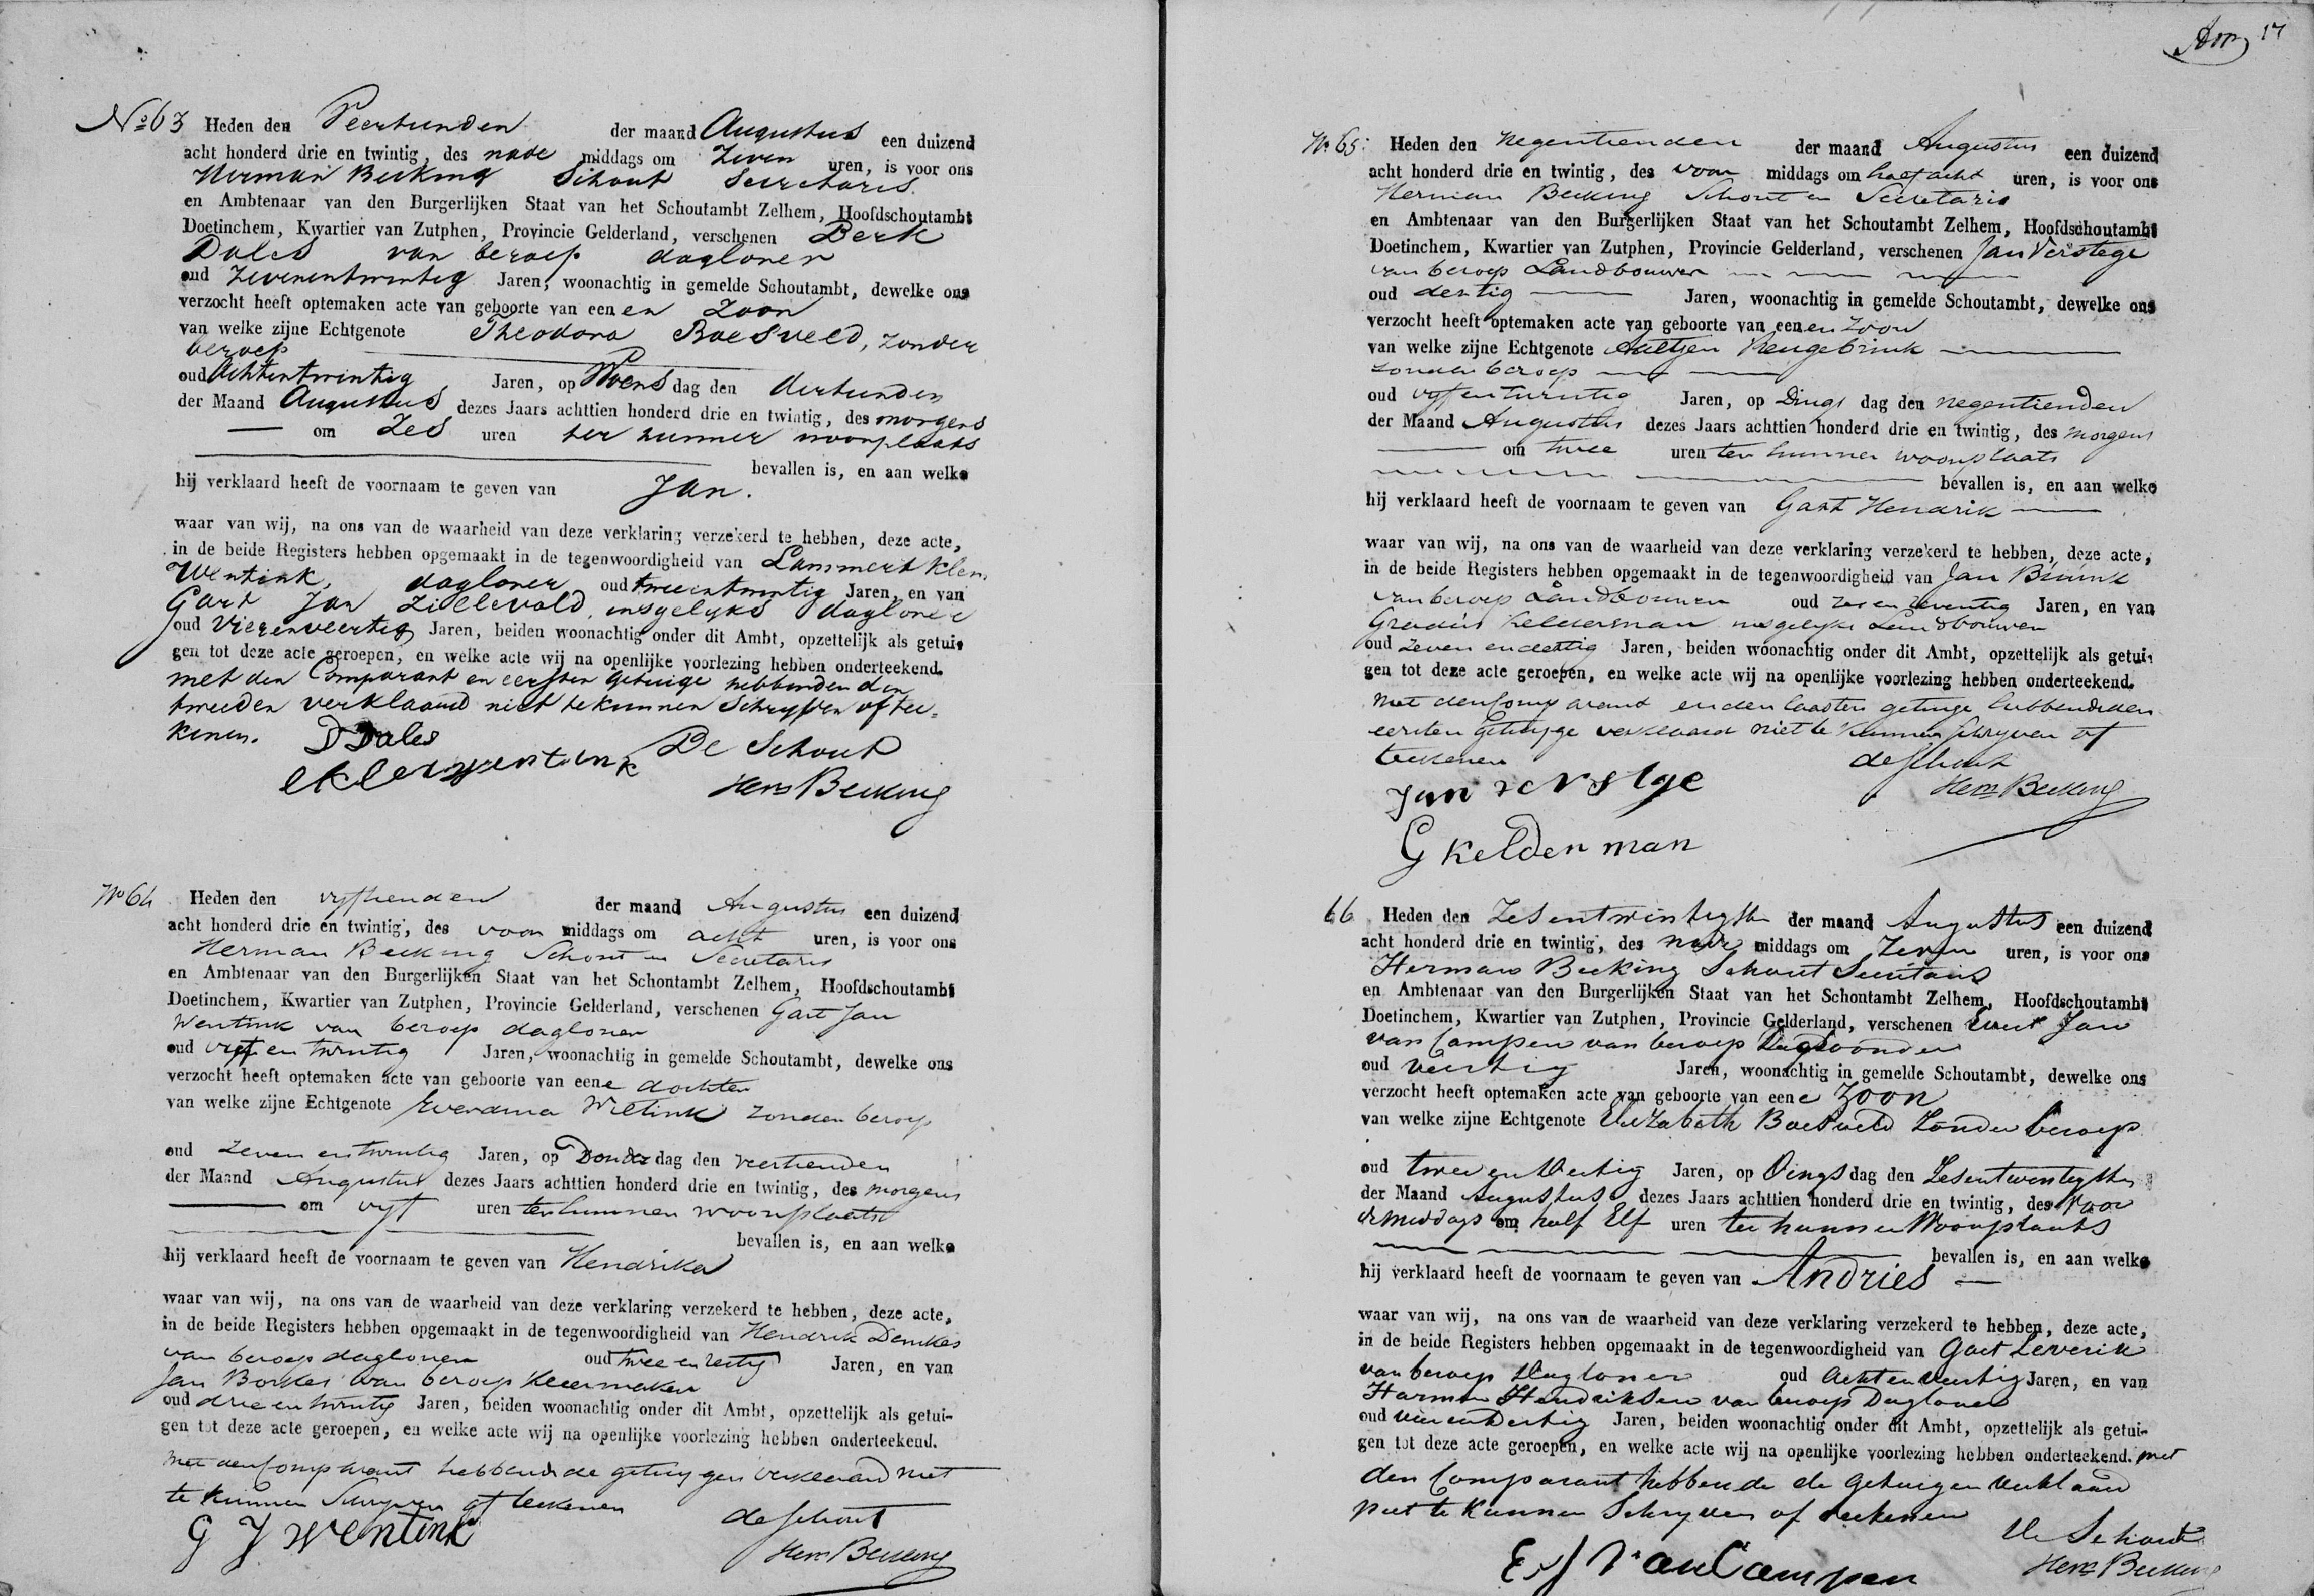 No 63 Heden den Veertienden der maand Augustus een duizend
acht honderd drie en twintig, des nade middags om Zeven uren, is voor ons
Herman Becking Schout Secretaris
en Ambtenaar van den Burgerlijken Staat van het Schoutambt Zelhem, Hoofdschoutambt
Doetinchem, Kwartier van Zutphen, Provincie Gelderland, verschenen Derk
Dales van beroep dagloner
oud Zevenentwintig Jaren, woonachtig in gemelde Schoutambt, dewelke ons
verzocht heeft optemaken acte van geboorte van een en Zoon
van welke zijne Echtgenote Theodora Boesveld, zonder
beroep
oud Achtentwintig Jaren, op Woens dag den dertienden
der Maand Augustus dezes Jaars achttien honderd drie en twintig, des morgens
om Zes uren ter hunner woonplaats
bevallen is, en aan welke
hij verklaard heeft de voornaam te geven van Jan.
waar van wij, na ons van de waarheid van deze verklaring verzekerd te hebben, deze acte,
in de beide Registers hebben opgemaakt in de tegenwoordigheid van Lammert Klein
Wentink, dagloner oud tweeentwintig Jaren, en van
Gart Jan Zillevold insgelyks dagloner
oud Vierenveertig Jaren, beiden woonachtig onder dit Ambt, opzettelijk als getui-
gen tot deze acte geroepen, en welke acte wij na openlijke voorlezing hebben onderteekend.
met den Comparant en eersten getuige hebbende den
tweeden verklaard niet te kunnen Schryven of tee-
kenen. D Dales De Schout
Herm Becking
No 64 Heden den vyftienden der maand Augustus een duizend
acht honderd drie en twintig, des voor middags om acht uren, is voor ons
Herman Becking Schout en Secretaris
en Ambtenaar van den Burgerlijken Staat van het Schontambt Zelhem, Hoofdschoutambt
Doetinchem, Kwartier van Zutphen, Provincie Gelderland, verschenen Gart Jan
Wentink van beroep dagloner
oud vyf en twintig Jaren, woonachtig in gemelde Schoutambt, dewelke ons
verzocht heeft optemaken acte van geboorte van eene dochter
van welke zijne Echtgenote Everdina Wiltink zonder beroep
oud Zeven en twintig Jaren, op Donder dag den veertienden
der Maand Augustus dezes Jaars achttien honderd drie en twintig, des morgens
om vyf uren ter hunner woonplaats
bevallen is, en aan welke
hij verklaard heeft de voornaam te geven van Hendrika
waar van wij, na ons van de waarheid van deze verklaring verzekerd te hebben, deze acte,
in de beide Registers hebben opgemaakt in de tegenwoordigheid van Hendrik
van beroep dagloner oud twee en Jaren, en van
Jan van beroep
oud drie en twintig Jaren, beiden woonachtig onder dit Ambt, opzettelijk als getui-
gen tot deze acte geroepen, en welke acte wij na openlijke voorlezing hebben onderteekend.
met den Comparant hebbende de getuygen verklaard niet
te kunnen Schryven of teekenen
G J Wentink de Schout
Herm Becking
17
No 65: Heden den Negentienden der maand Augustus een duizend
acht honderd drie en twintig, des voor middags om half acht uren, is voor ons
Herman Becking Schout en Secretaris
en Ambtenaar van den Burgerlijken Staat van het Schoutambt Zelhem, Hoofdschoutambt
Doetinchem, Kwartier van Zutphen, Provincie Gelderland, verschenen Jan Verstege
van beroep Landbouwer
oud dertig Jaren, woonachtig in gemelde Schoutambt, dewelke ons
verzocht heeft optemaken acte van geboorte van eenen zoon
van welke zijne Echtgenote Aeltjen Rengebrink
zonder beroep
oud vyf en twintig Jaren, op Dings dag den negentienden
der Maand Augustus dezes Jaars achttien honderd drie en twintig, des morgens
om twee uren ter hunner woonplaats
bevallen is, en aan welke
hij verklaard heeft de voornaam te geven van Gart Hendrik
waar van wij, na ons van de waarheid van deze verklaring verzekerd te hebben, deze acte,
in de beide Registers hebben opgemaakt in de tegenwoordigheid van Jan Bruink
van beroep Landbouwer oud zes en zeventig Jaren, en van
Gradus Kelderman insgelyks Landbouwer
oud zeven en dertig Jaren, beiden woonachtig onder dit Ambt, opzettelijk als getui-
gen tot deze acte geroepen, en welke acte wij na openlijke voorlezing hebben onderteekend.
met den Comparant en den laasten getuige hebbende den
eersten getuyge verklaard niet te kunnen schryven of
teekenen de Schout
Jan verstge Herm Becking
G Kelderman
66 Heden den Zesentwintigsten der maand Augustus een duizend
acht honderd drie en twintig, des nade middags om Zeven uren, is voor ons
Herman Becking Schout Secretaris
en Ambtenaar van den Burgerlijken Staat van het Schontambt Zelhem, Hoofdschoutambt
Doetinchem, Kwartier van Zutphen, Provincie Gelderland, verschenen Evert Jan
van Campen van beroep
oud Veertig Jaren, woonachtig in gemelde Schoutambt, dewelke ons
verzocht heeft optemaken acte van geboorte van eene Zoon
van welke zijne Echtgenote Elizabeth Boesveld Zonder beroep
oud twee en Veertig Jaren, op Dings dag den Zesentwentigsten
der Maand Augustus dezes Jaars achttien honderd drie en twintig, des Voor
de middags om half Elf uren ter hunner Woonplaats
bevallen is, en aan welke
hij verklaard heeft de voornaam te geven van Andries
waar van wij, na ons van de waarheid van deze verklaring verzekerd te hebben, deze acte,
in de beide Registers hebben opgemaakt in de tegenwoordigheid van Gart Leverik
van beroep Dagloner oud Acht en Veertig Jaren, en van
Harmen Hendriksen van beroep Dagloner
oud vier en Dertig Jaren, beiden woonachtig onder dit Ambt, opzettelijk als getui-
gen tot deze acte geroepen, en welke acte wij na openlijke voorlezing hebben onderteekend. met
den Comparant hebbende de Getuigen Verklaard
niet te kunnen Schryven of teekenen
De Schout
E J Van Campen Herm Becking